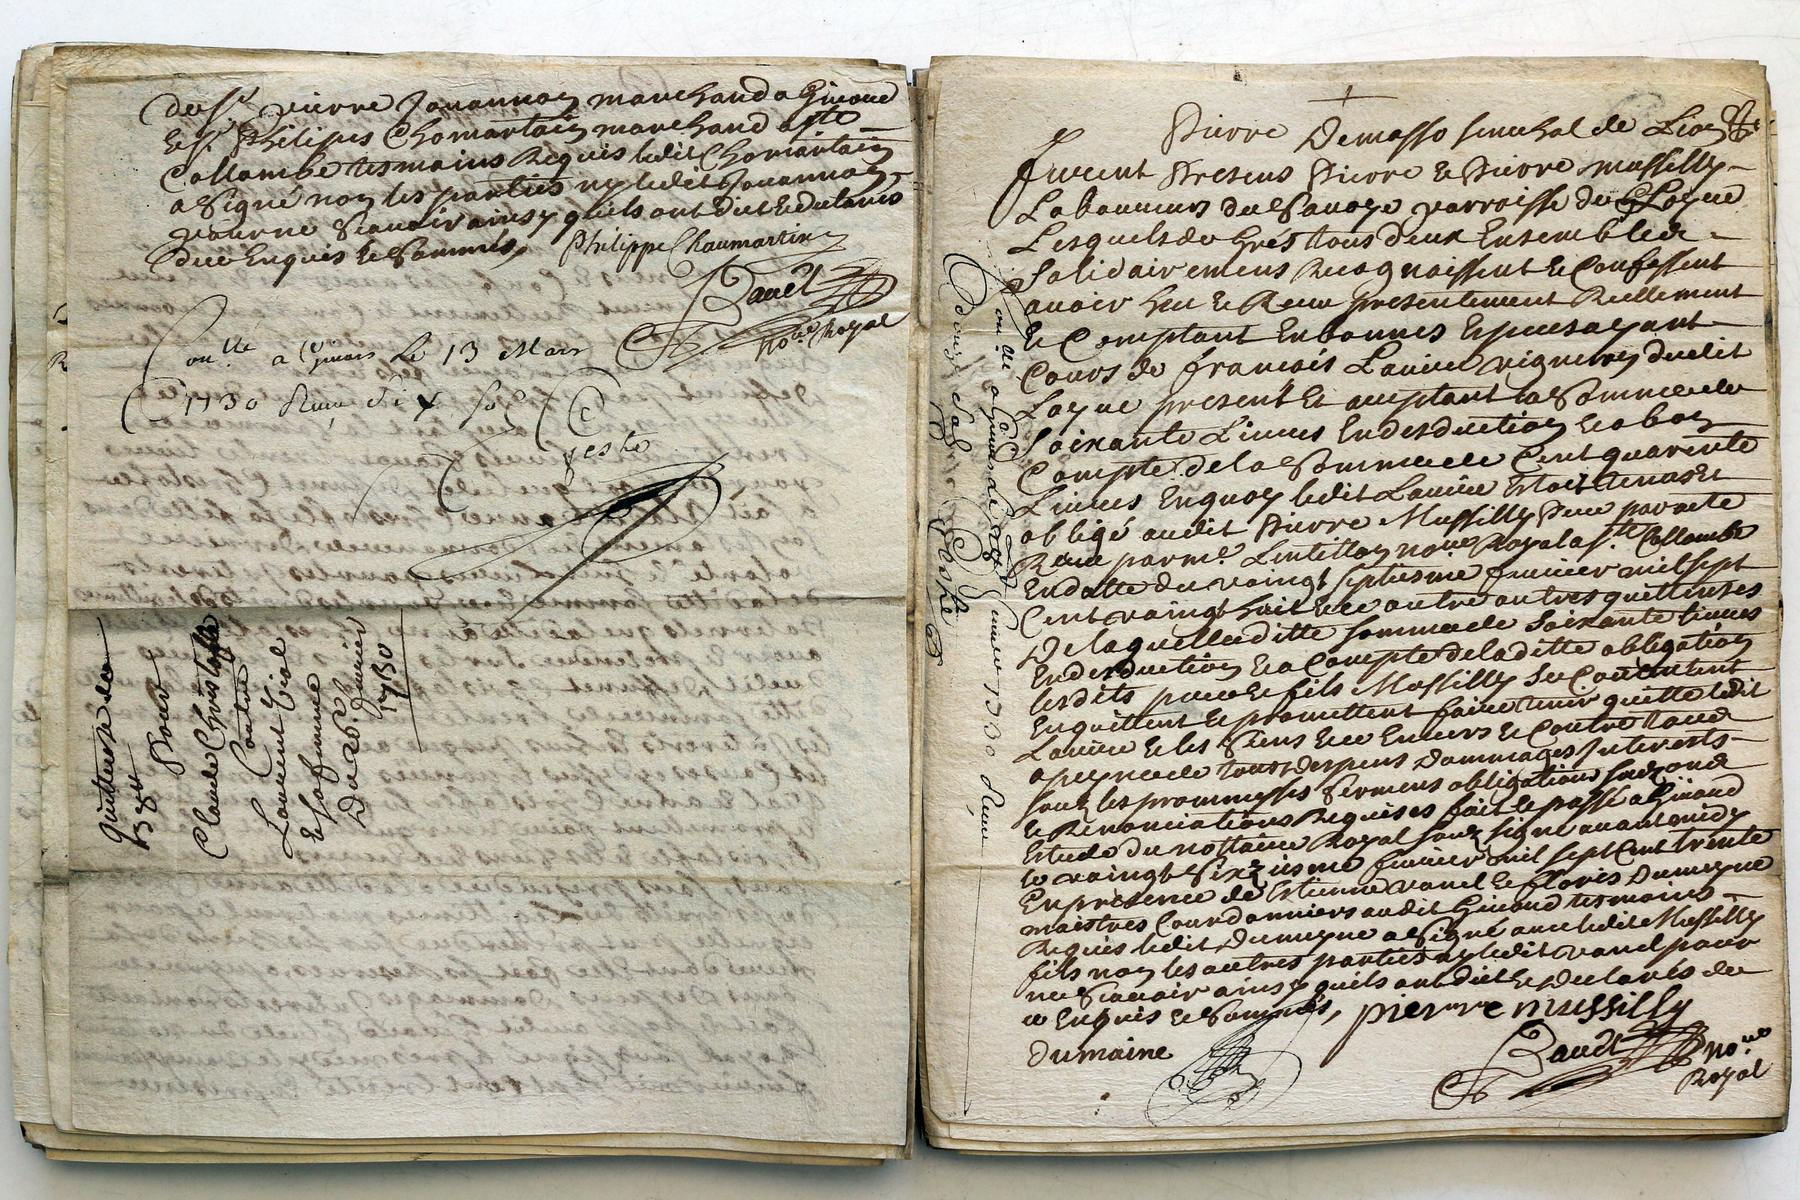 du Sr. pierre Jouannon marchand a Givord
& Sr. Philipes Chomartain marchand a Ste
Collombe tesmoins Requis ledit Chomartain
a Signé non les parties ny ledit Jouannon
pour ne Scauoir ainsy quils ont dit & declarés
due Enquis & Sommés, Philippe Chaumartin
Baudt
Nore Royal
Conllé a Givors le 13 Mars
1730 Reçu Six sols
geste
quittance de
Pour
Claude Christofle
Contre
Laurent Vial
& sa femme
Du 26e. feurier
1730
Pierre Demasso senechal de Lion &c
furent Presens Pierre & Pierre Mussilly
Laboureurs du Sauoye parroisse de Loyre
Lesquels de Grés tous deux Ensemble &
Solidairemens Recognoissent & Confessent
auoir heu & Receu presentement Reellement
& Comptant En bonnes Espesses ayant
Cours de françois Lauice vigneron dudit
Loyre present & aceptant la Somme de
Soixante Liures En desduction & a bon
Compte de la Somme de Cent quarente
Liures En quoy ledit Lauice Estoit tenu &
obligé audit Pierre Mussilly Pere par acte
Receu par me. Lintillon nore Royal a Ste Collombe
En datte du vaingt septiesme feurier mil sept
Cent vaingt huit & ce outre autres quittences
De laquelle ditte somme de Soixante liures
En desduction & a Compte de la ditte obligation
lesdits pere & fils Mussilly Se Contentent
En quittent & promettent faire tenir quitte ledit
Lauice & les Siens & ce Enuers & Contre tous
a peyne de tous Despens Dommages Interests
Souz les prommesses Sermens obligations
& Renonciations Requises fait & passé a Givord
Estude du nottaire Royal souz signe auant midy
le vaingt Sixziesme feurier mil sept Cent trente
En presence de Estienne vanel & floris Dumayne
maistres Courdonniers audit Givord tesmoins
Requis ledit Dumayne a Signé auec ledit Mussilly
fils non les autres parties ny ledit vanel pour
ne Scauoir ainsy quils ont dit & declarés de
ce Enquis & Sommés, pierre mussilly
Dumaine
Baudt Nore
Royal
Conllé a Givors le 1730 Reçu
Douze Sols
geste